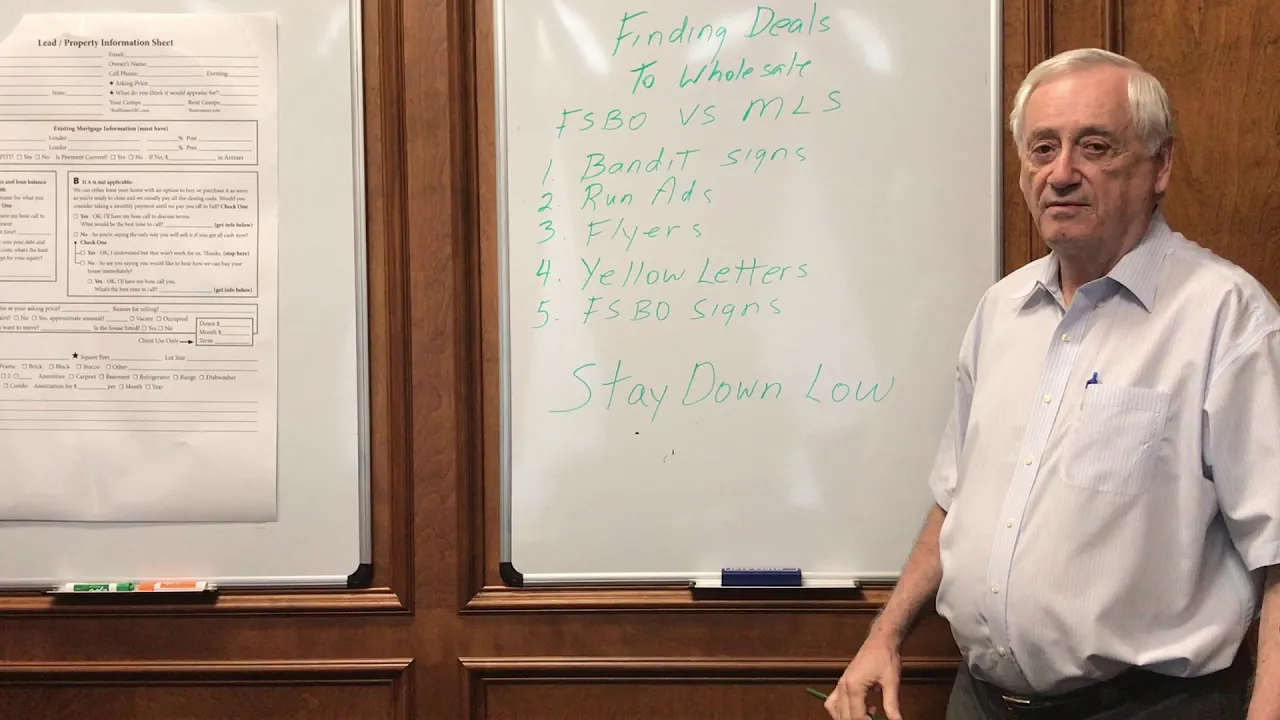 Lead / Property Information Sheet
Email:
Owner's Name:
Cell Phone: Evening:
★ Asking Price:
State: ★ What do you think it would appraise for?
Your Comps Rent Comps
Existing Mortgage Information (must have)
Lender % Pmt
Lender % Pmt
PITI? ☐ Yes ☐ No Is Payment Current? ☐ Yes ☐ No If No, $ in Arrears
B If A is not applicable:
We can either lease your home with an option to buy or purchase it as soon
as you're ready to close and we usually pay all the closing costs. Would you
consider taking a monthly payment until we pay you off in full? Check One
☐ Yes - OK, I'll have my boss call to discuss terms.
What would be the best time to call? (get info below)
☐ No - So you're saying the only way you will sell is if you get all cash now?
Check One
☐ Yes - OK, I understand but that won't work for us. Thanks, (stop here)
☐ No - So are you saying you would like to hear how we can buy your
house immediately?
☐ Yes - OK, I'll have my boss call you,
What's the best time to call? (get info below)
at your asking price? Reason for selling?
☐ No ☐ Yes, approximate amount? ☐ Vacant ☐ Occupied
want to move? Is the house listed? ☐ Yes ☐ No
Down $
Month $
Term
Client Use Only
★ Square Feet Lot Size
Frame ☐ Brick ☐ Block ☐ Stucco ☐ Other
☐ 2 ☐ Amenities: ☐ Carport ☐ Basement ☐ Refrigerator ☐ Range ☐ Dishwasher
☐ Condo Association fee $ per ☐ Month ☐ Year
Finding Deals
To Wholesale
FSBO VS MLS
1. Bandit signs
2. Run Ads
3. Flyers
4. Yellow Letters
5. FSBO signs
Stay Down Low